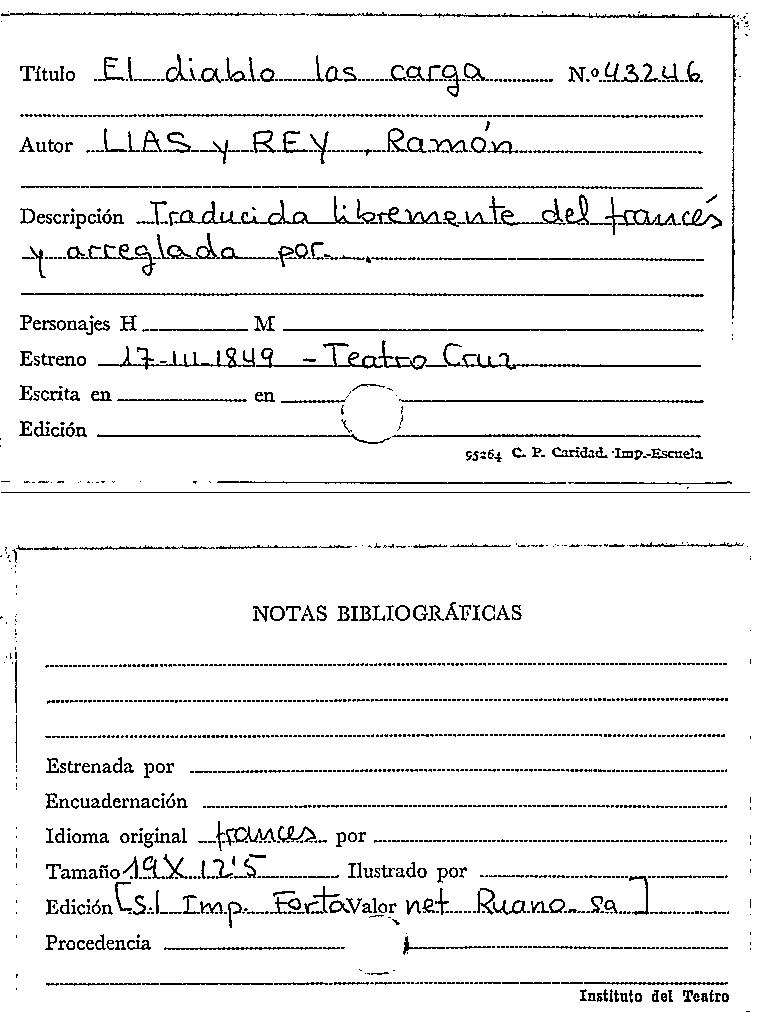 Título El diablo las carga N.º 43246
Autor LIAS y REY, Ramón
Descripción Traducida libremente del francés
y arreglada por.
Personajes H M
Estreno 17-III-1849 - Teatro Cruz
Escrita en en
Edición
95264 C. P. Caridad. Imp.-Escuela
NOTAS BIBLIOGRÁFICAS
Estrenada por
Encuadernación
Idioma original frances por
Tamaño 19 X 12'5 Ilustrado por
Edición [S.l Imp. Forta Valor net Ruano. sa]
Procedencia
Instituto del Teatro